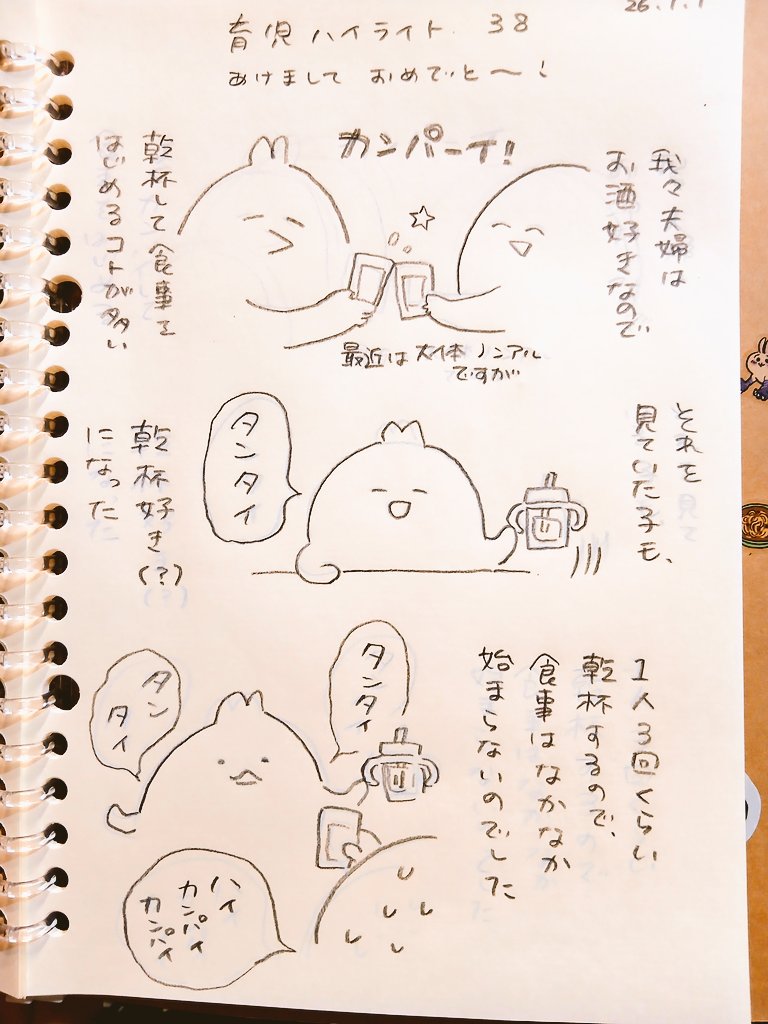 26.1.1
育児ハイライト 38
あけまして おめでと〜!
カンパーイ!
我々夫婦は
お酒好きなので
乾杯して食事を
はじめるコトが多い
最近は大体ノンアル
ですが
それを
見ていた子も、
タンタイ
乾杯好き(?)
になった
1人3回くらい
乾杯するので、
食事はなかなか
始まらないのでした
タンタイ
タン
タイ
ハイ
カンパイ
カンパイ